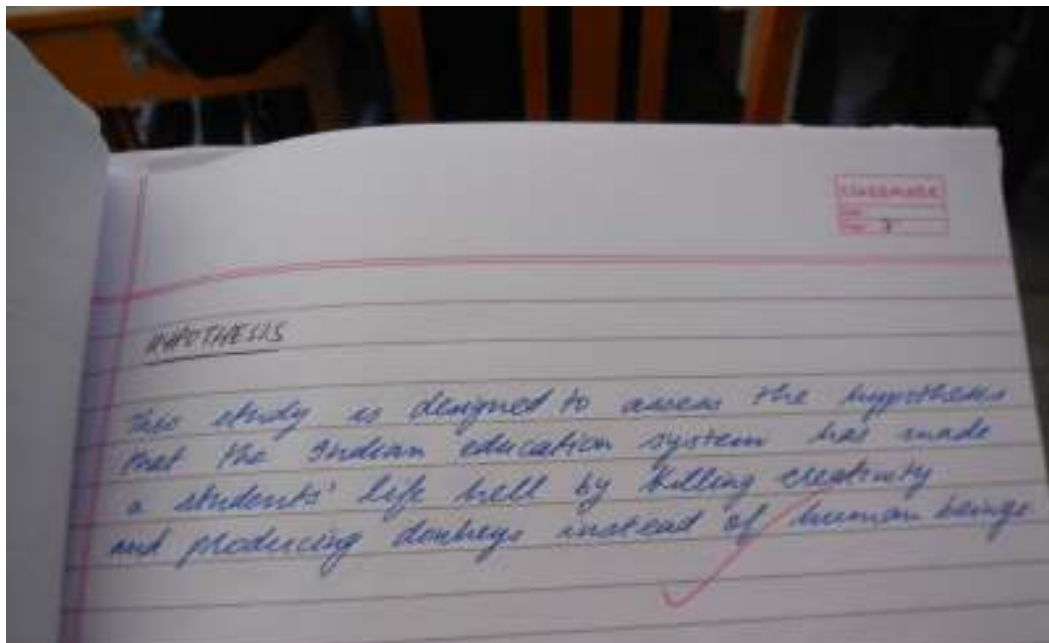 classmate
Date
Page
HYPOTHESIS
This study is designed to assess the hypothesis
that the Indian education system has made
a students' life hell by killing creativity
and producing donkeys instead of human beings